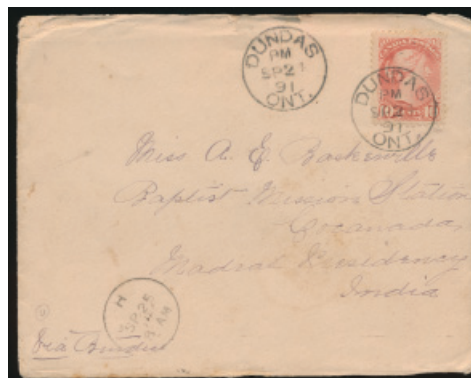 DUNDAS
PM
SP 21
91
ONT.
DUNDAS
PM
SP 2
91
ONT.
Miss A. E. Baskerville
Baptist Mission Station
Cocanada,
Madras Presidency
India
H
SP 25
AM
Via London